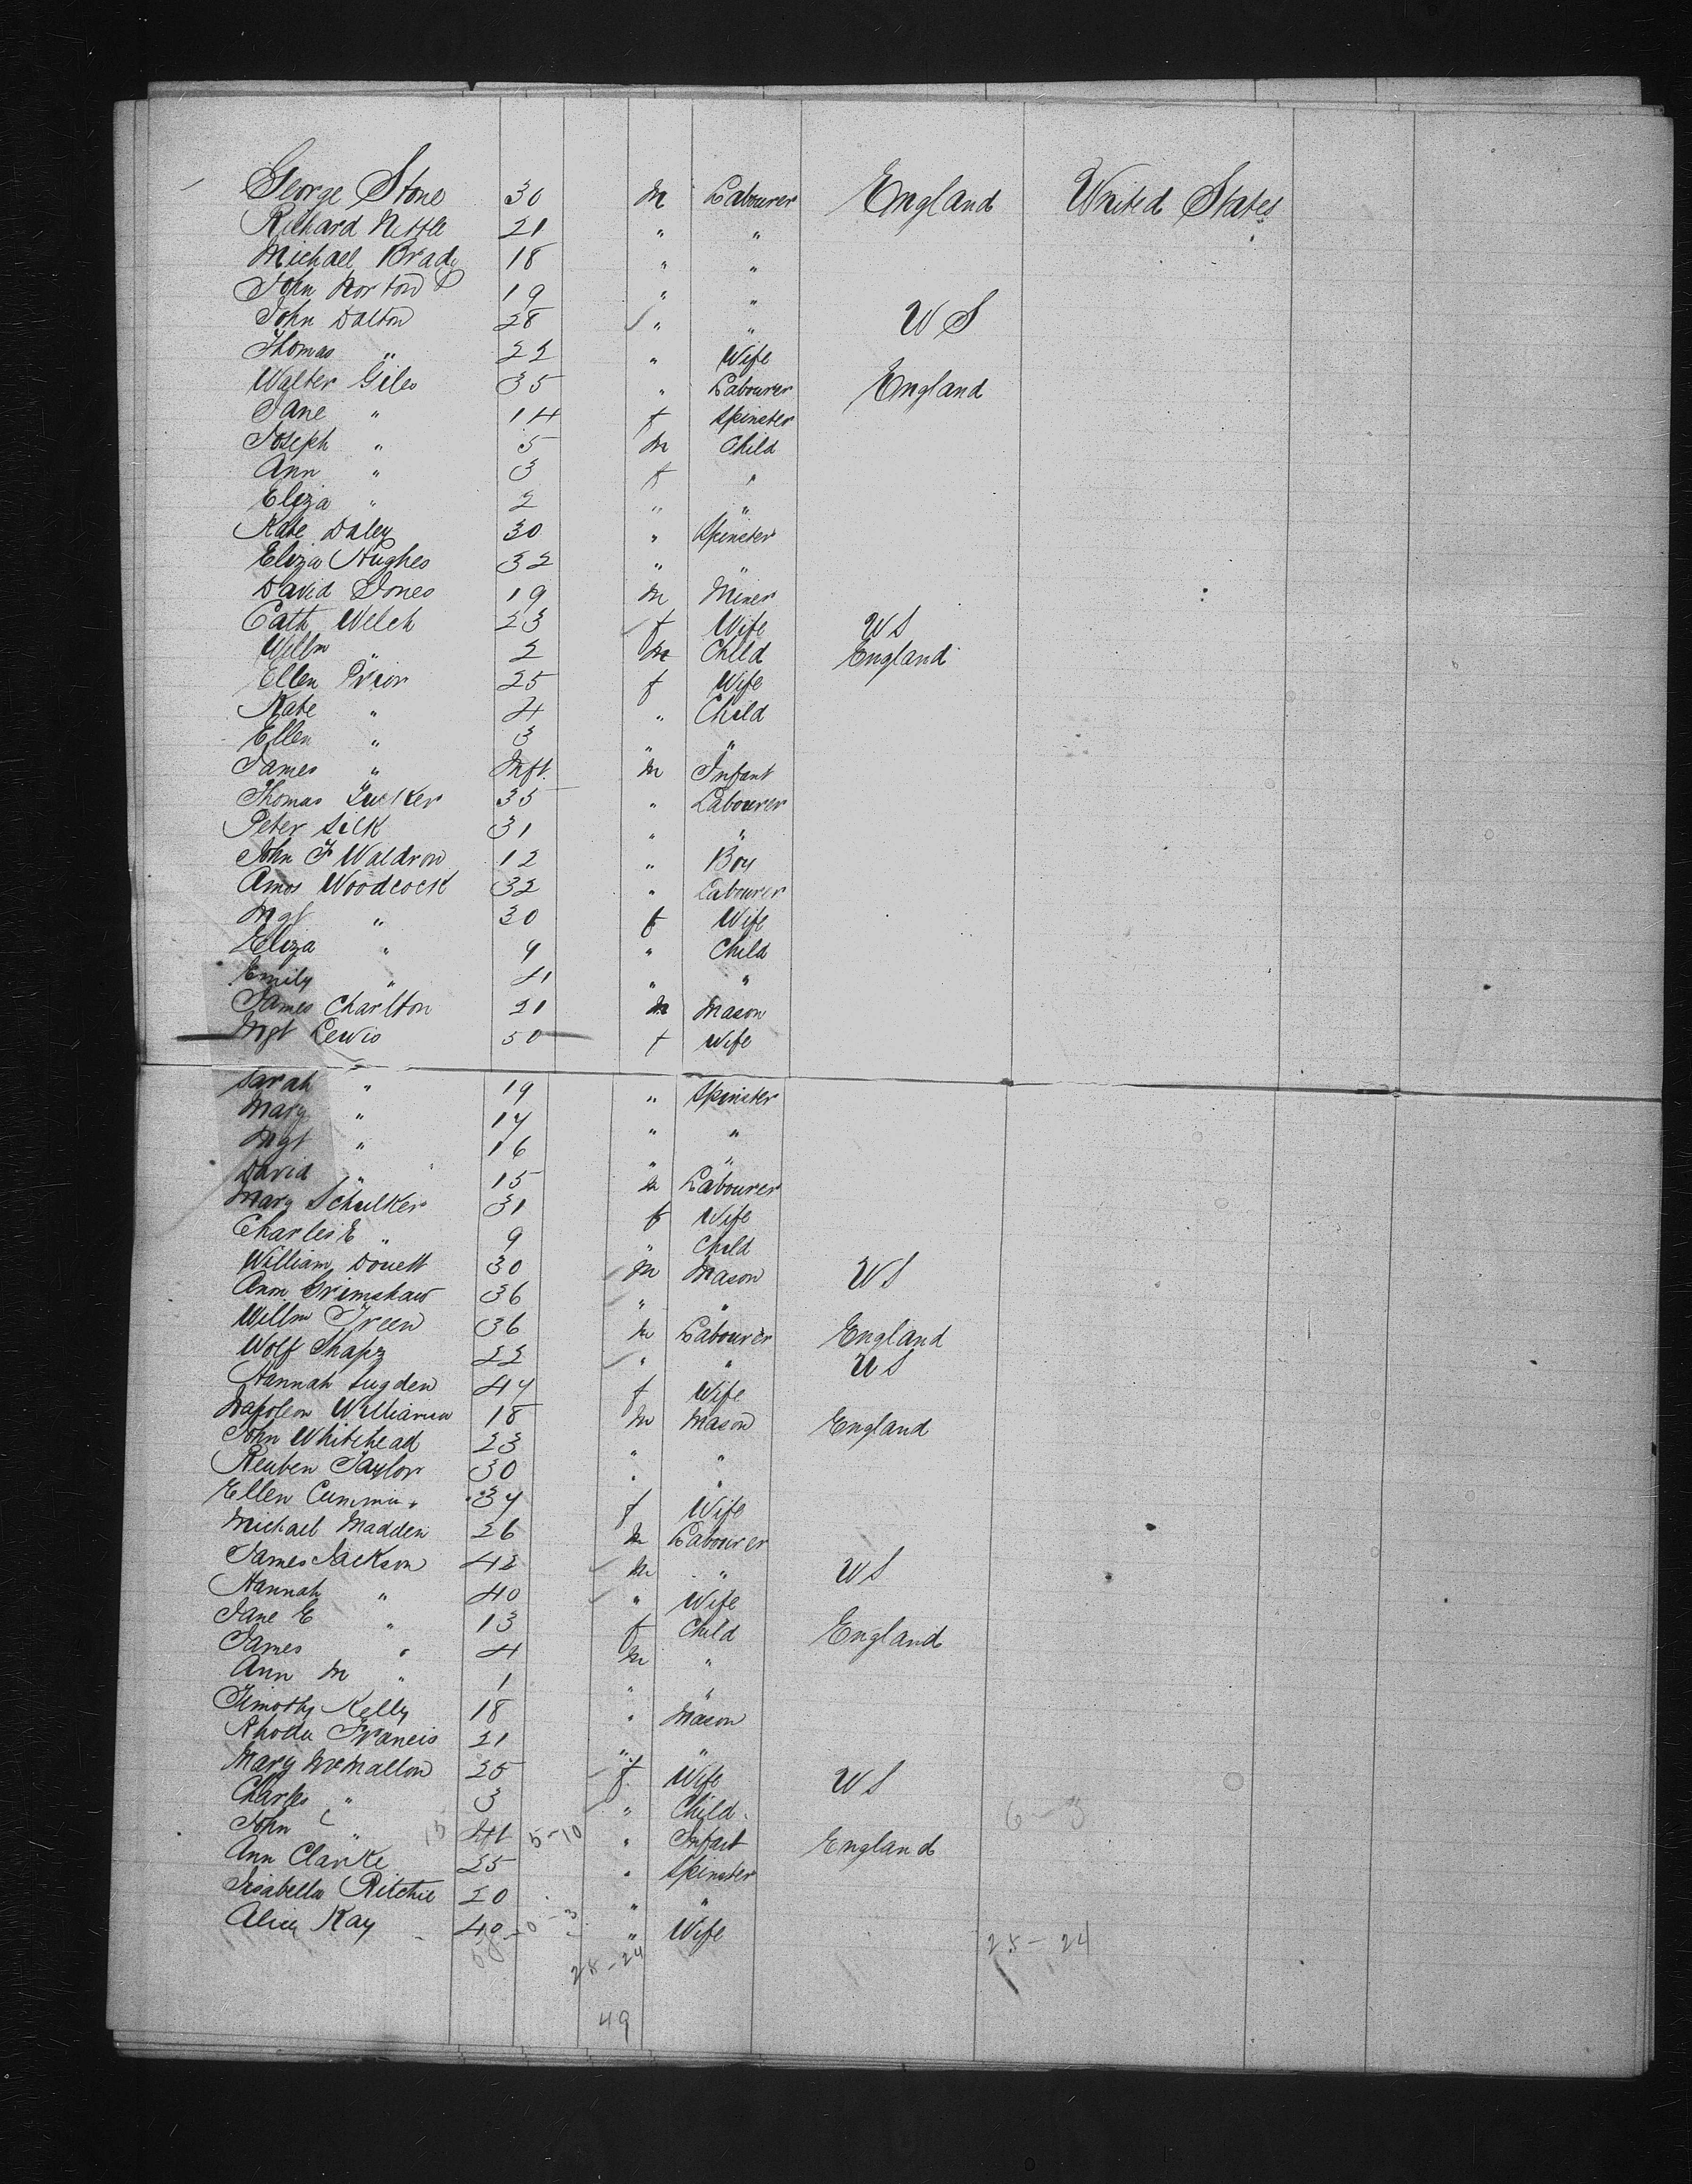 George Stone 30 m Labourer England United States
Richard Nettle 21 " "
Michael Brady 18 " "
John Norton 19 " "
John Dalton 28 " " U S
Thomas " 22 " Wife
Walter Giles 35 " Labourer England
Jane " 14 f Spinster
Joseph " 5 m Child
Ann " 3 f "
Eliza " 2 " "
Kate Daley 30 " Spinster
Eliza Hughes 32 " "
David Jones 19 m Miner
Cath Welch 23 f Wife U S
Willm " 2 m Child England
Ellen Prior 25 f Wife
Kate " 4 " Child
Ellen " 3 " "
James " Inft. m Infant
Thomas Tucker 35 " Labourer
Peter Silk 31 " "
John F Waldron 12 " Boy
Amos Woodcock 32 " Labourer
Mgt " 30 f Wife
Eliza " 9 " Child
Emily " " "
James Charlton 21 m Mason
Mgt Lewis 50 f Wife
Sarah " 19 " Spinster
Mary " 17 " "
Mgt " 16 " "
David " 15 m Labourer
Mary Schulker 31 f Wife
Charles E " 9 " Child
William 30 m Mason U S
Ann Grimshaw 36 " "
Willm Green 36 m Labourer England
Wolf Shapz 22 " " U S
Hannah Sugden 47 f Wife
Napoleon Williams 18 m Mason England
John Whitehead 23 " "
Reuben Taylor 30 " "
Ellen 37 f Wife
Michael Madden 26 m Labourer
James Jackson 42 m " U S
Hannah " 40 " Wife
Jane E " 13 f Child England
James " 4 m "
Ann M " 1 " "
Timothy Kelly 18 " Mason
Rhoda Francis 21 " "
Mary McMallon 25 f Wife U S
Charles " 3 " Child
John C " 15 Inft 5-10 " Infant England 6-3
Ann Clarke 25 " Spinster
Isabella Ritchie 20 " "
Alice Kay 40 " Wife
28-24 28-24
49